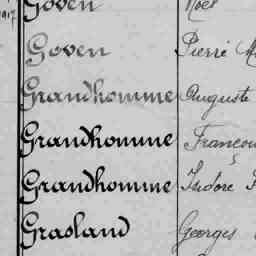 1917 Goven Noël
Goven Pierre
Grandhomme Auguste
Grandhomme
Grandhomme Isidore
Grasland Georges